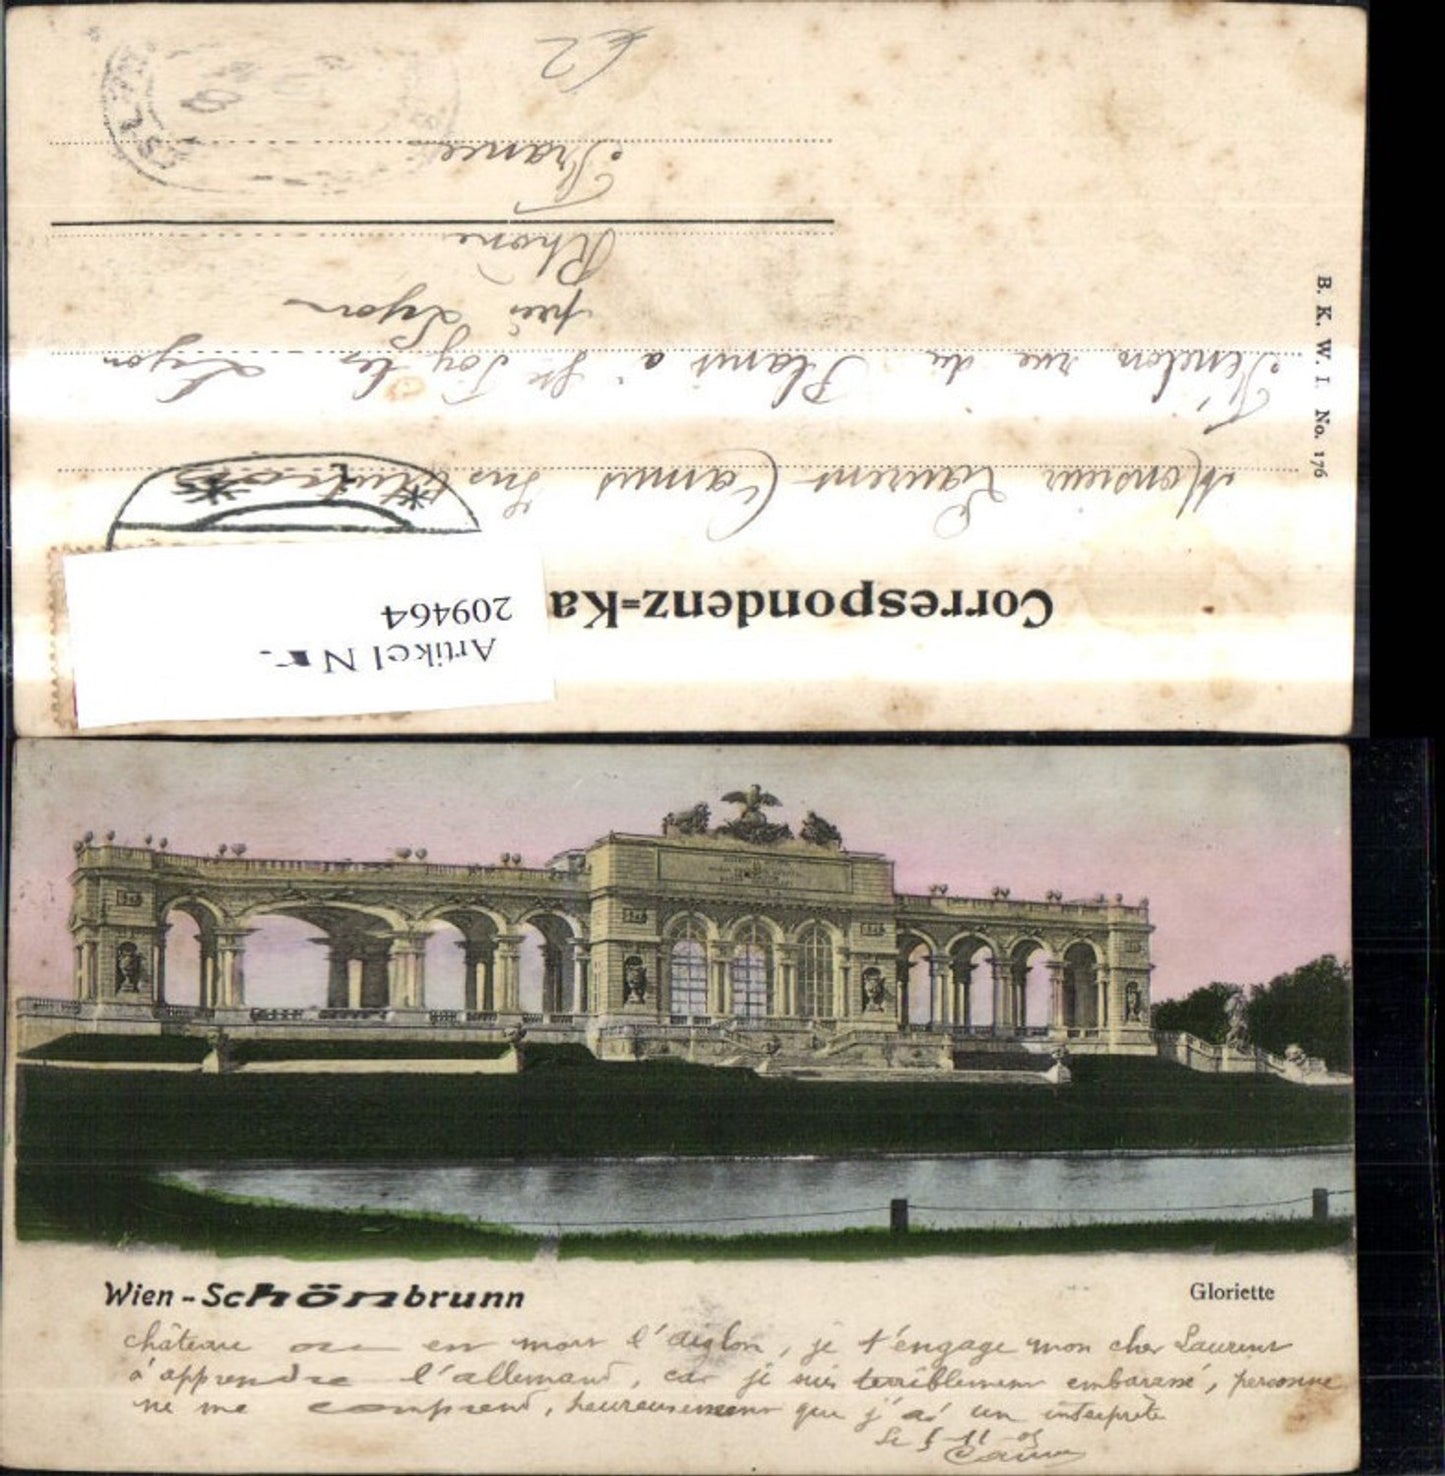 Correspondenz=Ka
Artikel Nr.
209464
Monsieur Laurent Camus Instituteur
Fénelon rue du Plans à Ste Foy les Lyon
près Lyon
Rhône
France
B. K. W. I. No. 176
€2
Wien - Schönbrunn
Gloriette
château où est mort l'aiglon, je t'engage mon cher Laurent
à apprendre l'allemand, car je suis terriblement embarassé, personne
ne me comprend, heureusement que j'ai un interprète
Le 5-11-05
Camus